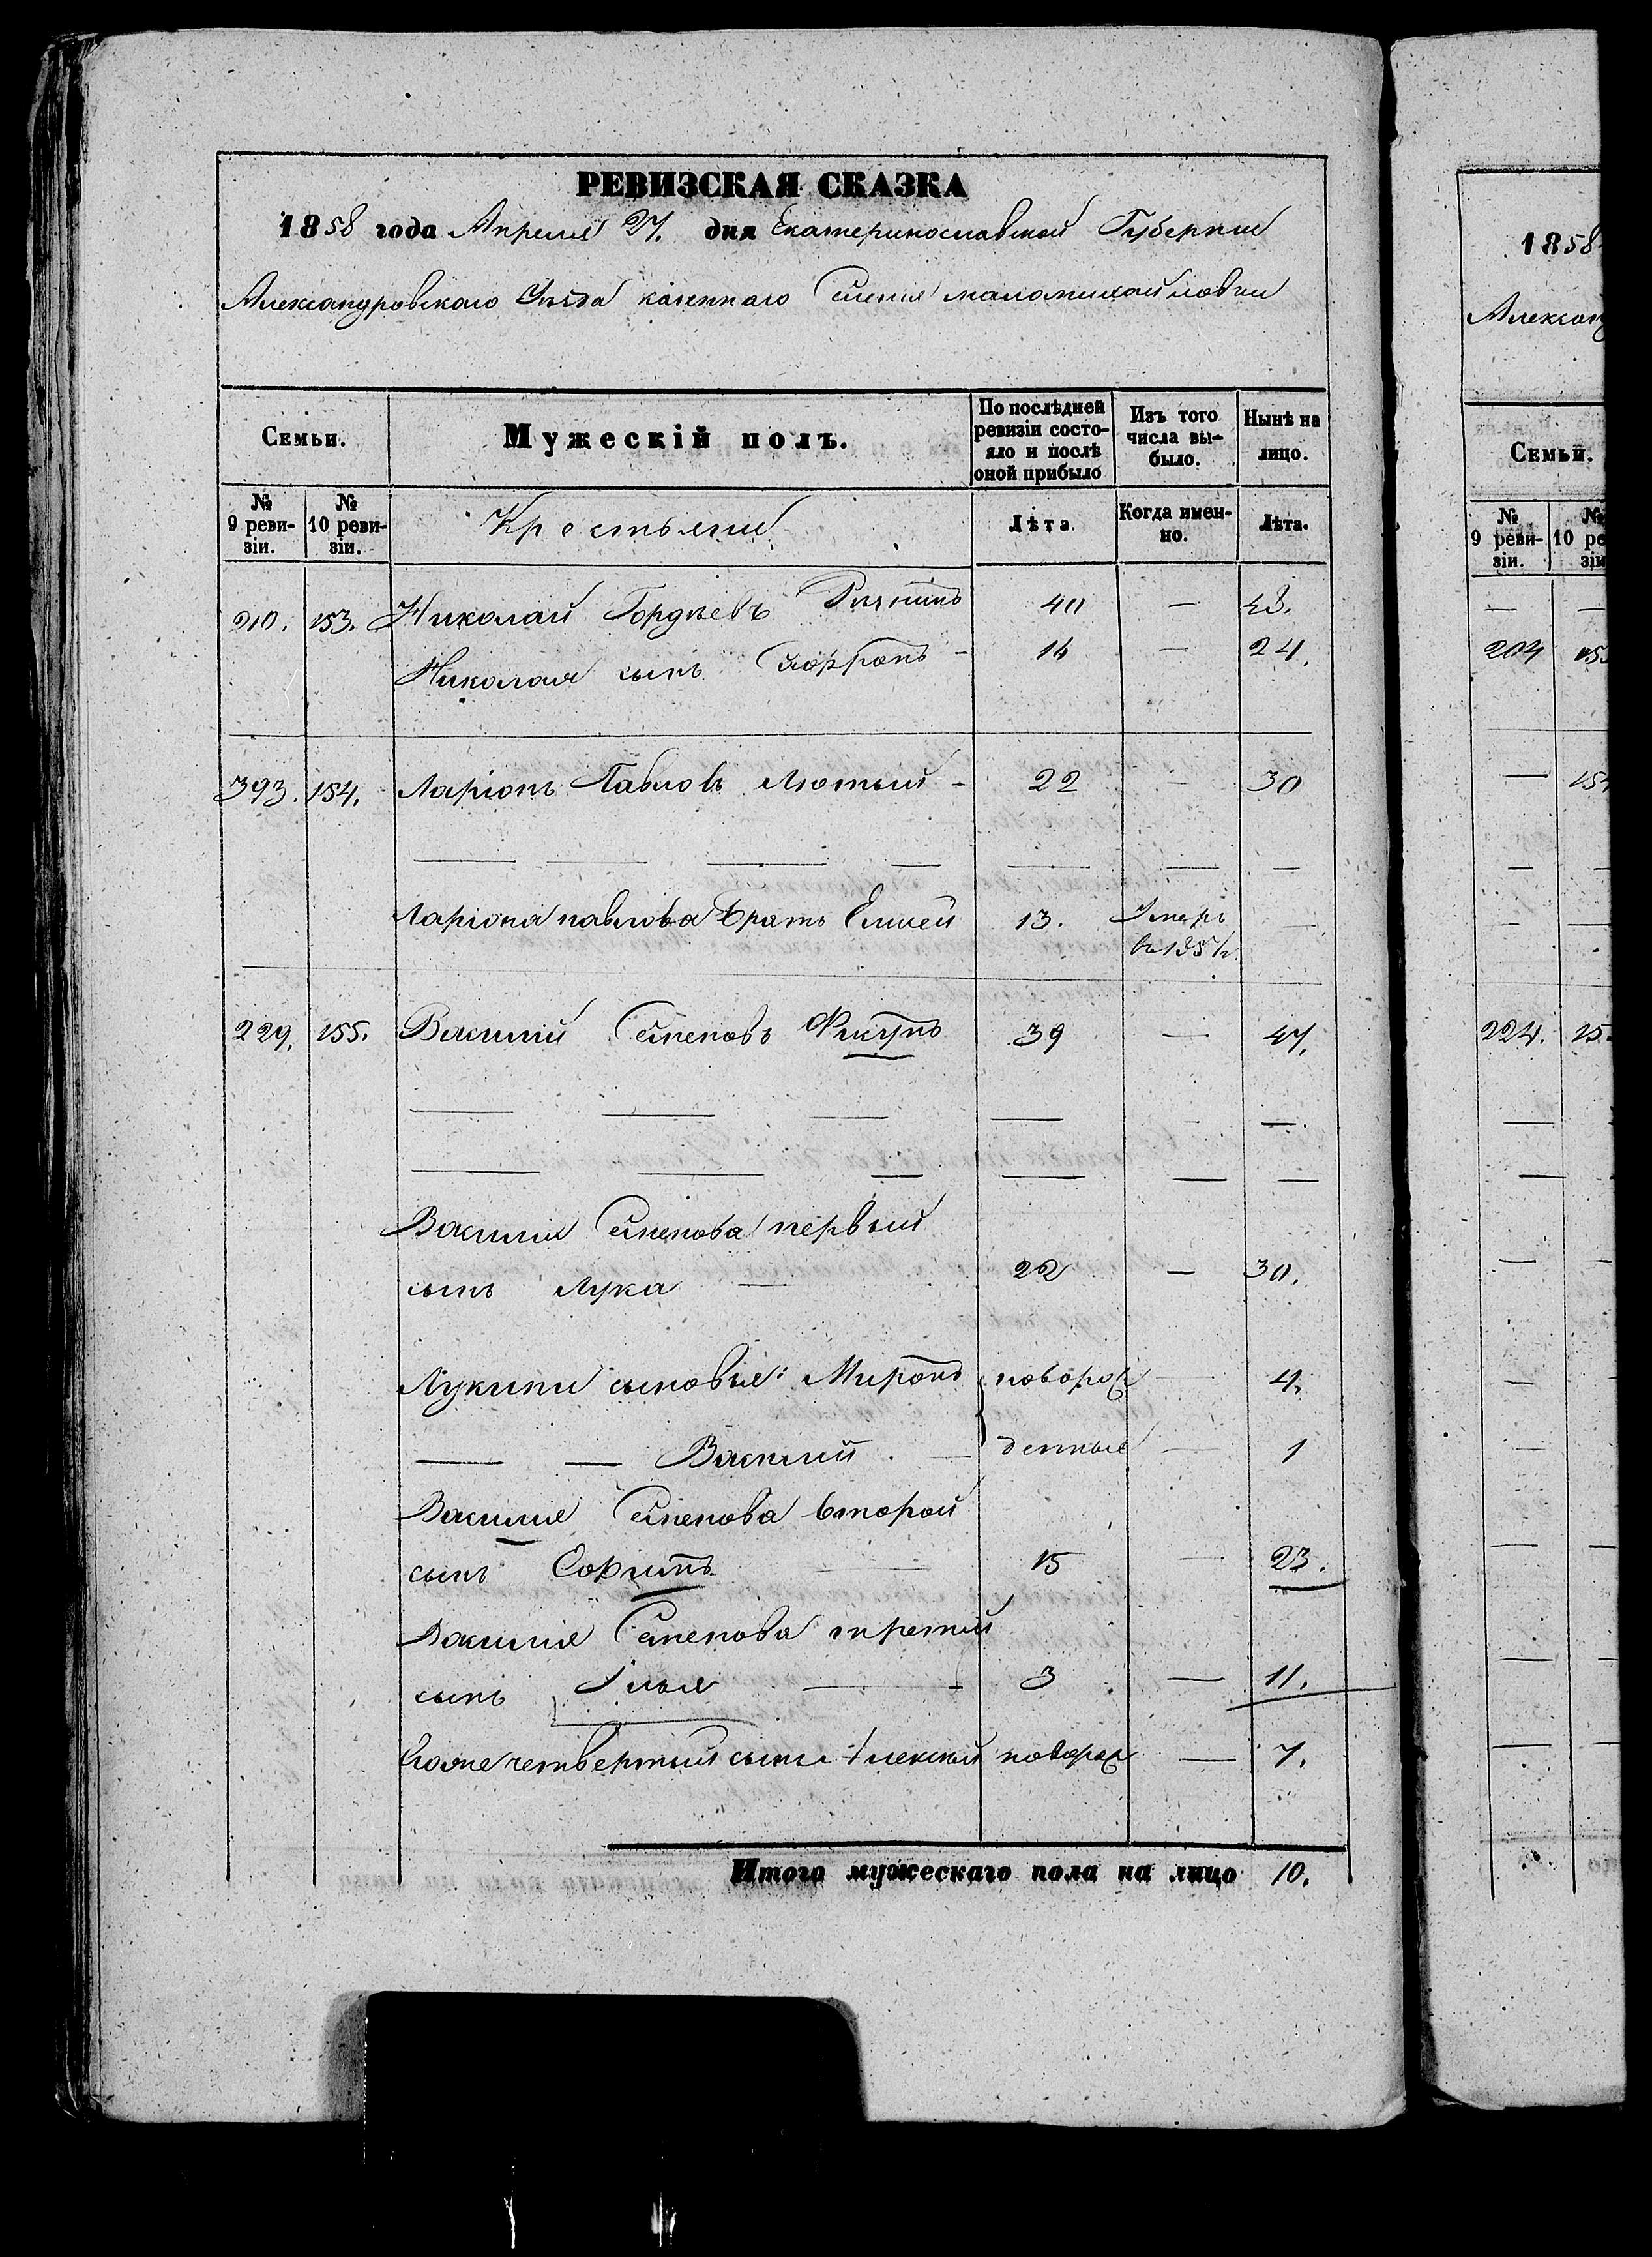 РЕВИЗСКАЯ СКАЗКА
1858 года Апреля 27. дня Екатеринославской Губернии
Александровского Уѣзда казеннаго Селенія маломихайловки
Семьи.
Мужескій полъ.
По послѣдней ревизіи состояло и послѣ оной прибыло
Изъ того числа выбыло.
Нынѣ на лицо.
№ 9 ревизіи.
№ 10 ревизіи.
Крестьяне
Лѣта.
Когда именно.
Лѣта.
210. 153. Николай Гордѣевъ 40 — 48.
Николая сынъ Софронъ — 16 — 24.
393. 154. Ларіонъ Павловъ Лютый — 22 — 30
— — — — — — —
Ларіона павлова братъ Елисей 13. Умеръ —
въ 185
229. 155. Василий Семеновъ Фикунъ 39 — 47.
— — — — — —
— — — — — —
Василия Семенова первый
сынъ Лука — 22 — 30.
Лукини сыновья: Миронъ новорож — 4.
— — Василий. — денные — 1
Василия Семенова второй
сынъ 15 — 23.
Василия Семенова третий
сынъ Илья — 3 — 11.
Егоже четвертый сынъ Алексей новорож — 7.
Итого мужескаго пола на лицо 10.
1858
Алексан
Семьи.
№ 9 ревизіи.
№ 10 ре
зіи
— —
204 15
— 154
— —
— —
224. 15
—
— —
— —
—
—
— —
— —
— —